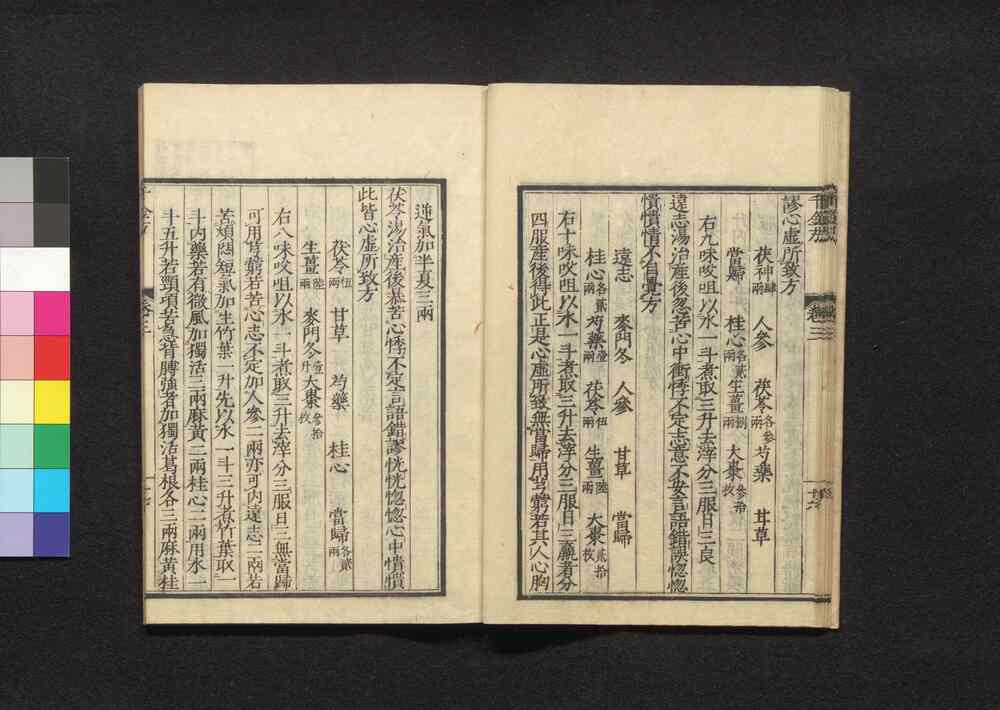 千金方
卷三
謬心虛所致方
茯神肆兩　人參　茯苓各參兩　芍藥　甘草
當歸　桂心各貳兩　生薑捌兩　大棗參拾枚
右九味㕮咀以水一斗煮取三升去滓分三服日三良
遠志湯治產後忽苦心中衝悸不定志意不安言語錯誤惚惚
憒憒情不自覺方
遠志　麥門冬　人參　甘草　當歸
桂心各貳兩　芍藥壹兩　茯苓伍兩　生薑陸兩　大棗貳拾枚
右十味㕮咀以水一斗煮取三升去滓分三服日三羸者分
四服產後得此正是心虛所致無當歸用芎藭若其人心胸
逆氣加半夏三兩
茯苓湯治產後暴苦心悸不定言語錯謬恍恍惚惚心中憒憒
此皆心虛所致方
茯苓伍兩　甘草　芍藥　桂心　當歸各貳兩
生薑陸兩　麥門冬壹升　大棗參拾枚
右八味㕮咀以水一斗煮取三升去滓分三服日三無當歸
可用芎藭若苦心志不定加人參二兩亦可內遠志二兩若
苦煩悶短氣加生竹葉一升先以水一斗三升煮竹葉取一
斗內藥若有微風加獨活三兩麻黃二兩桂心二兩用水一
斗五升若頸項苦急背膊強者加獨活葛根各三兩麻黃桂